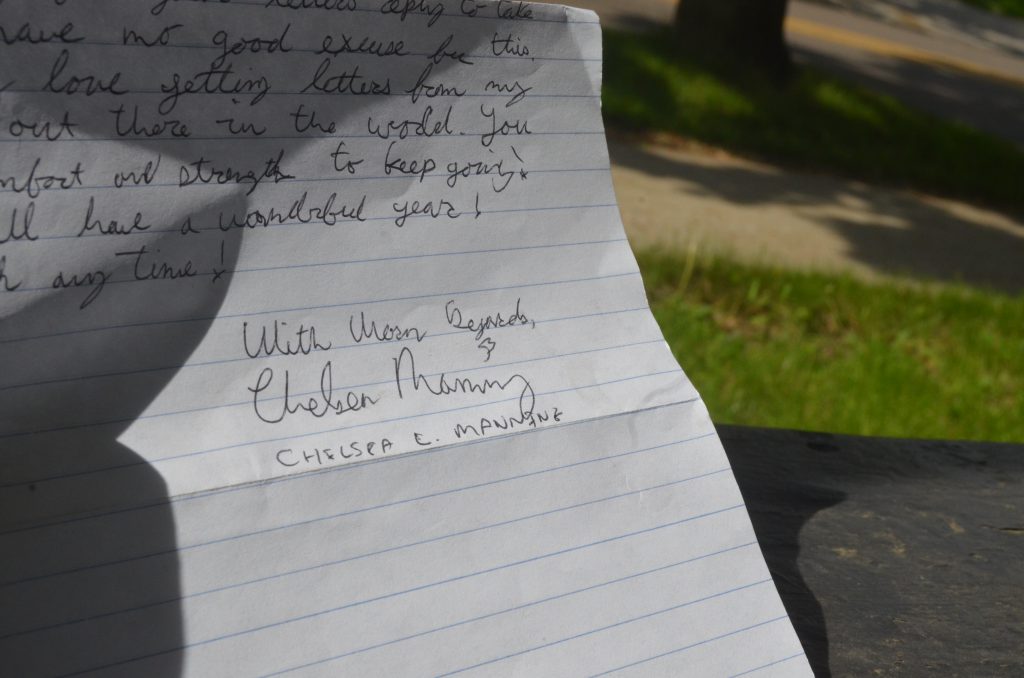 letters reply to take
have no good excuse but this.
love getting letters from my
out there in the world. You
mfort and strength to keep going!
ll have a wonderful year!
h any time!
With Warm Regards,
Chelsea Manning
CHELSEA E. MANNING